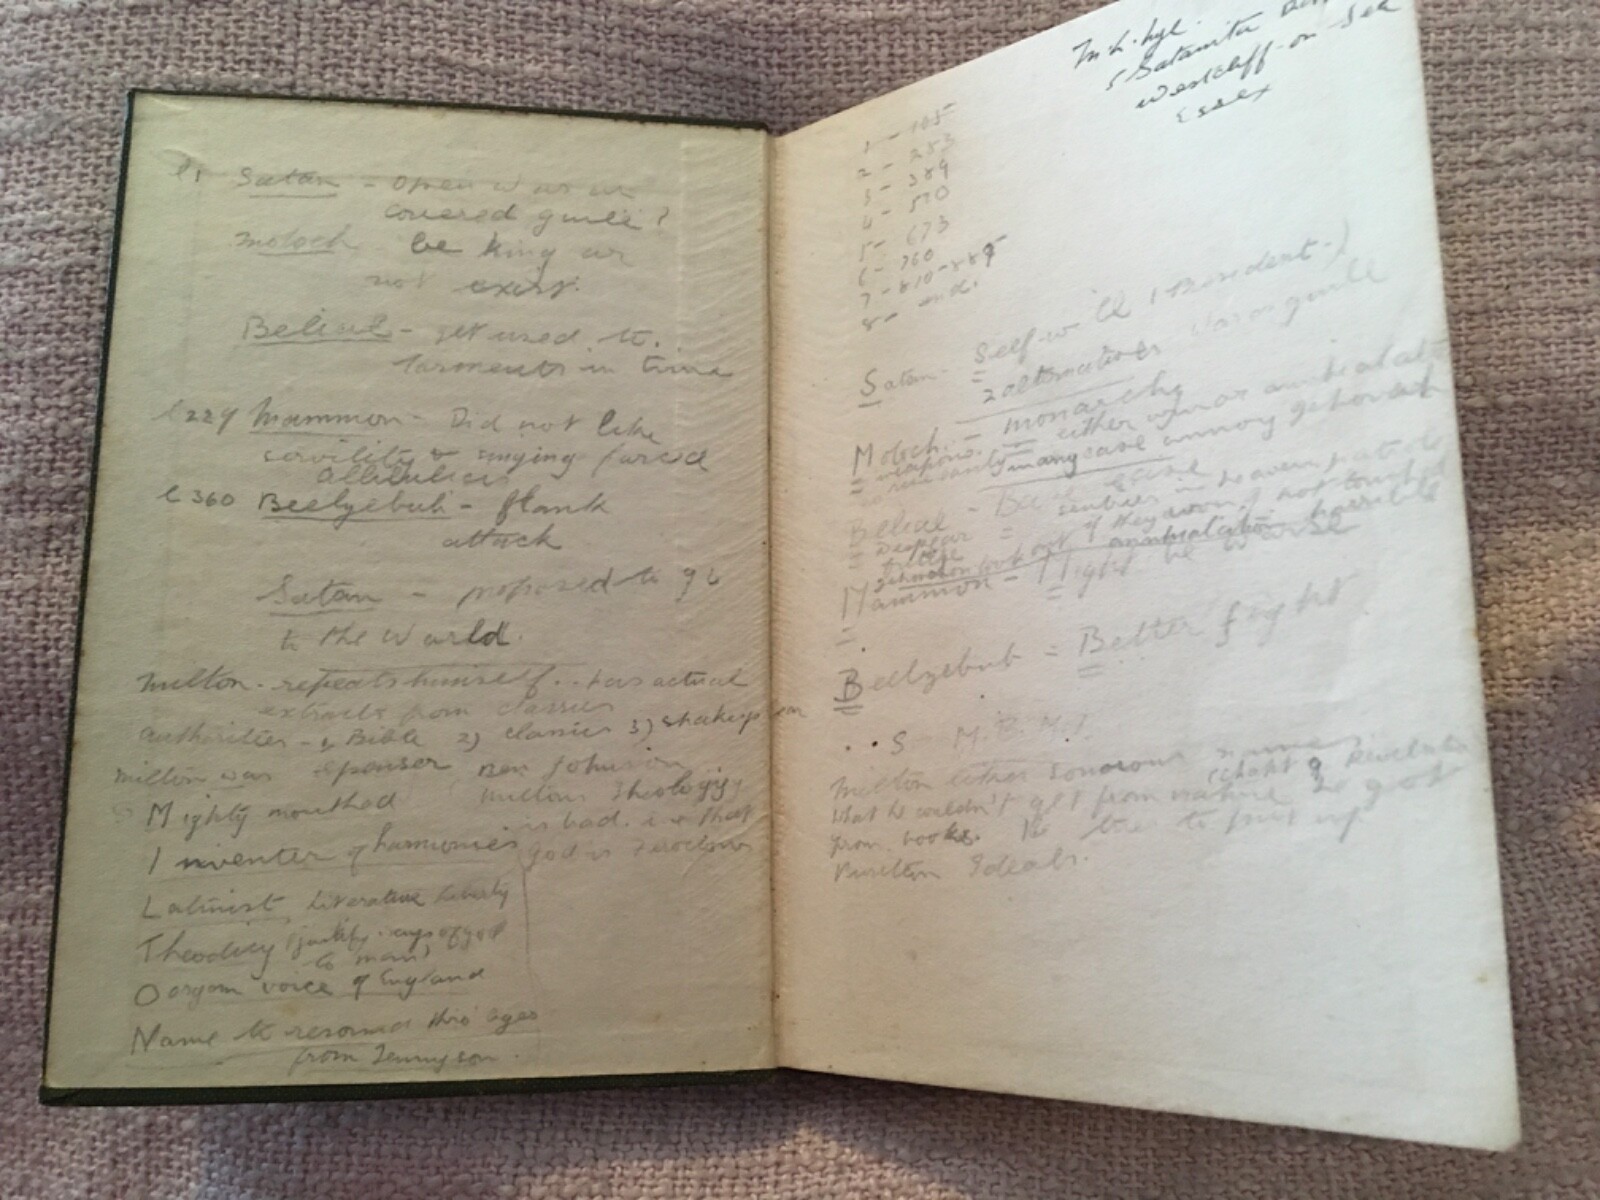 l1 Satan - open war or
covered guile?
Moloch be king or
not exist.
Belial - get used to
torments in time
l229 Mammon - Did not like
servility & singing forced
Alleluias
l360 Beelzebub - flank
attack
Satan - proposed to go
to the world.
Milton - repeats himself. has actual
extracts from classics
authorities - 1) Bible 2) classics 3) Shakespear
Milton was Spenser Ben Johnson
Mighty mouthed Miltons Theology
is bad. i.e that
Inventer of harmonies God is
Latinist, Literature Liberty
Theodicy (justify ways of god
to man)
Oorgan voice of England
Name to resound thro' ages
from Tennyson.
M. L.
5 Satanita
Westcliff-on-Sea
Essex
1 - 105
2 - 253
3 - 389
4 - 510
5 - 673
6 - 760
7 - 810-889
8 - end.
Satan - Self-will (President.)
2 alternatives War or guile
Moloch - Monarchy
either win or annihilated
in any case annoy Jehovah
Belial - ease
sentries in Heaven patrol
if they won, not touched
annihilation horrible
Mammon - Might be worse
Beelzebub = Better fight
S M. B. M.
Milton sonorous names
what he wouldn't get from nature he got
from books. He tries to put up
Ideals.